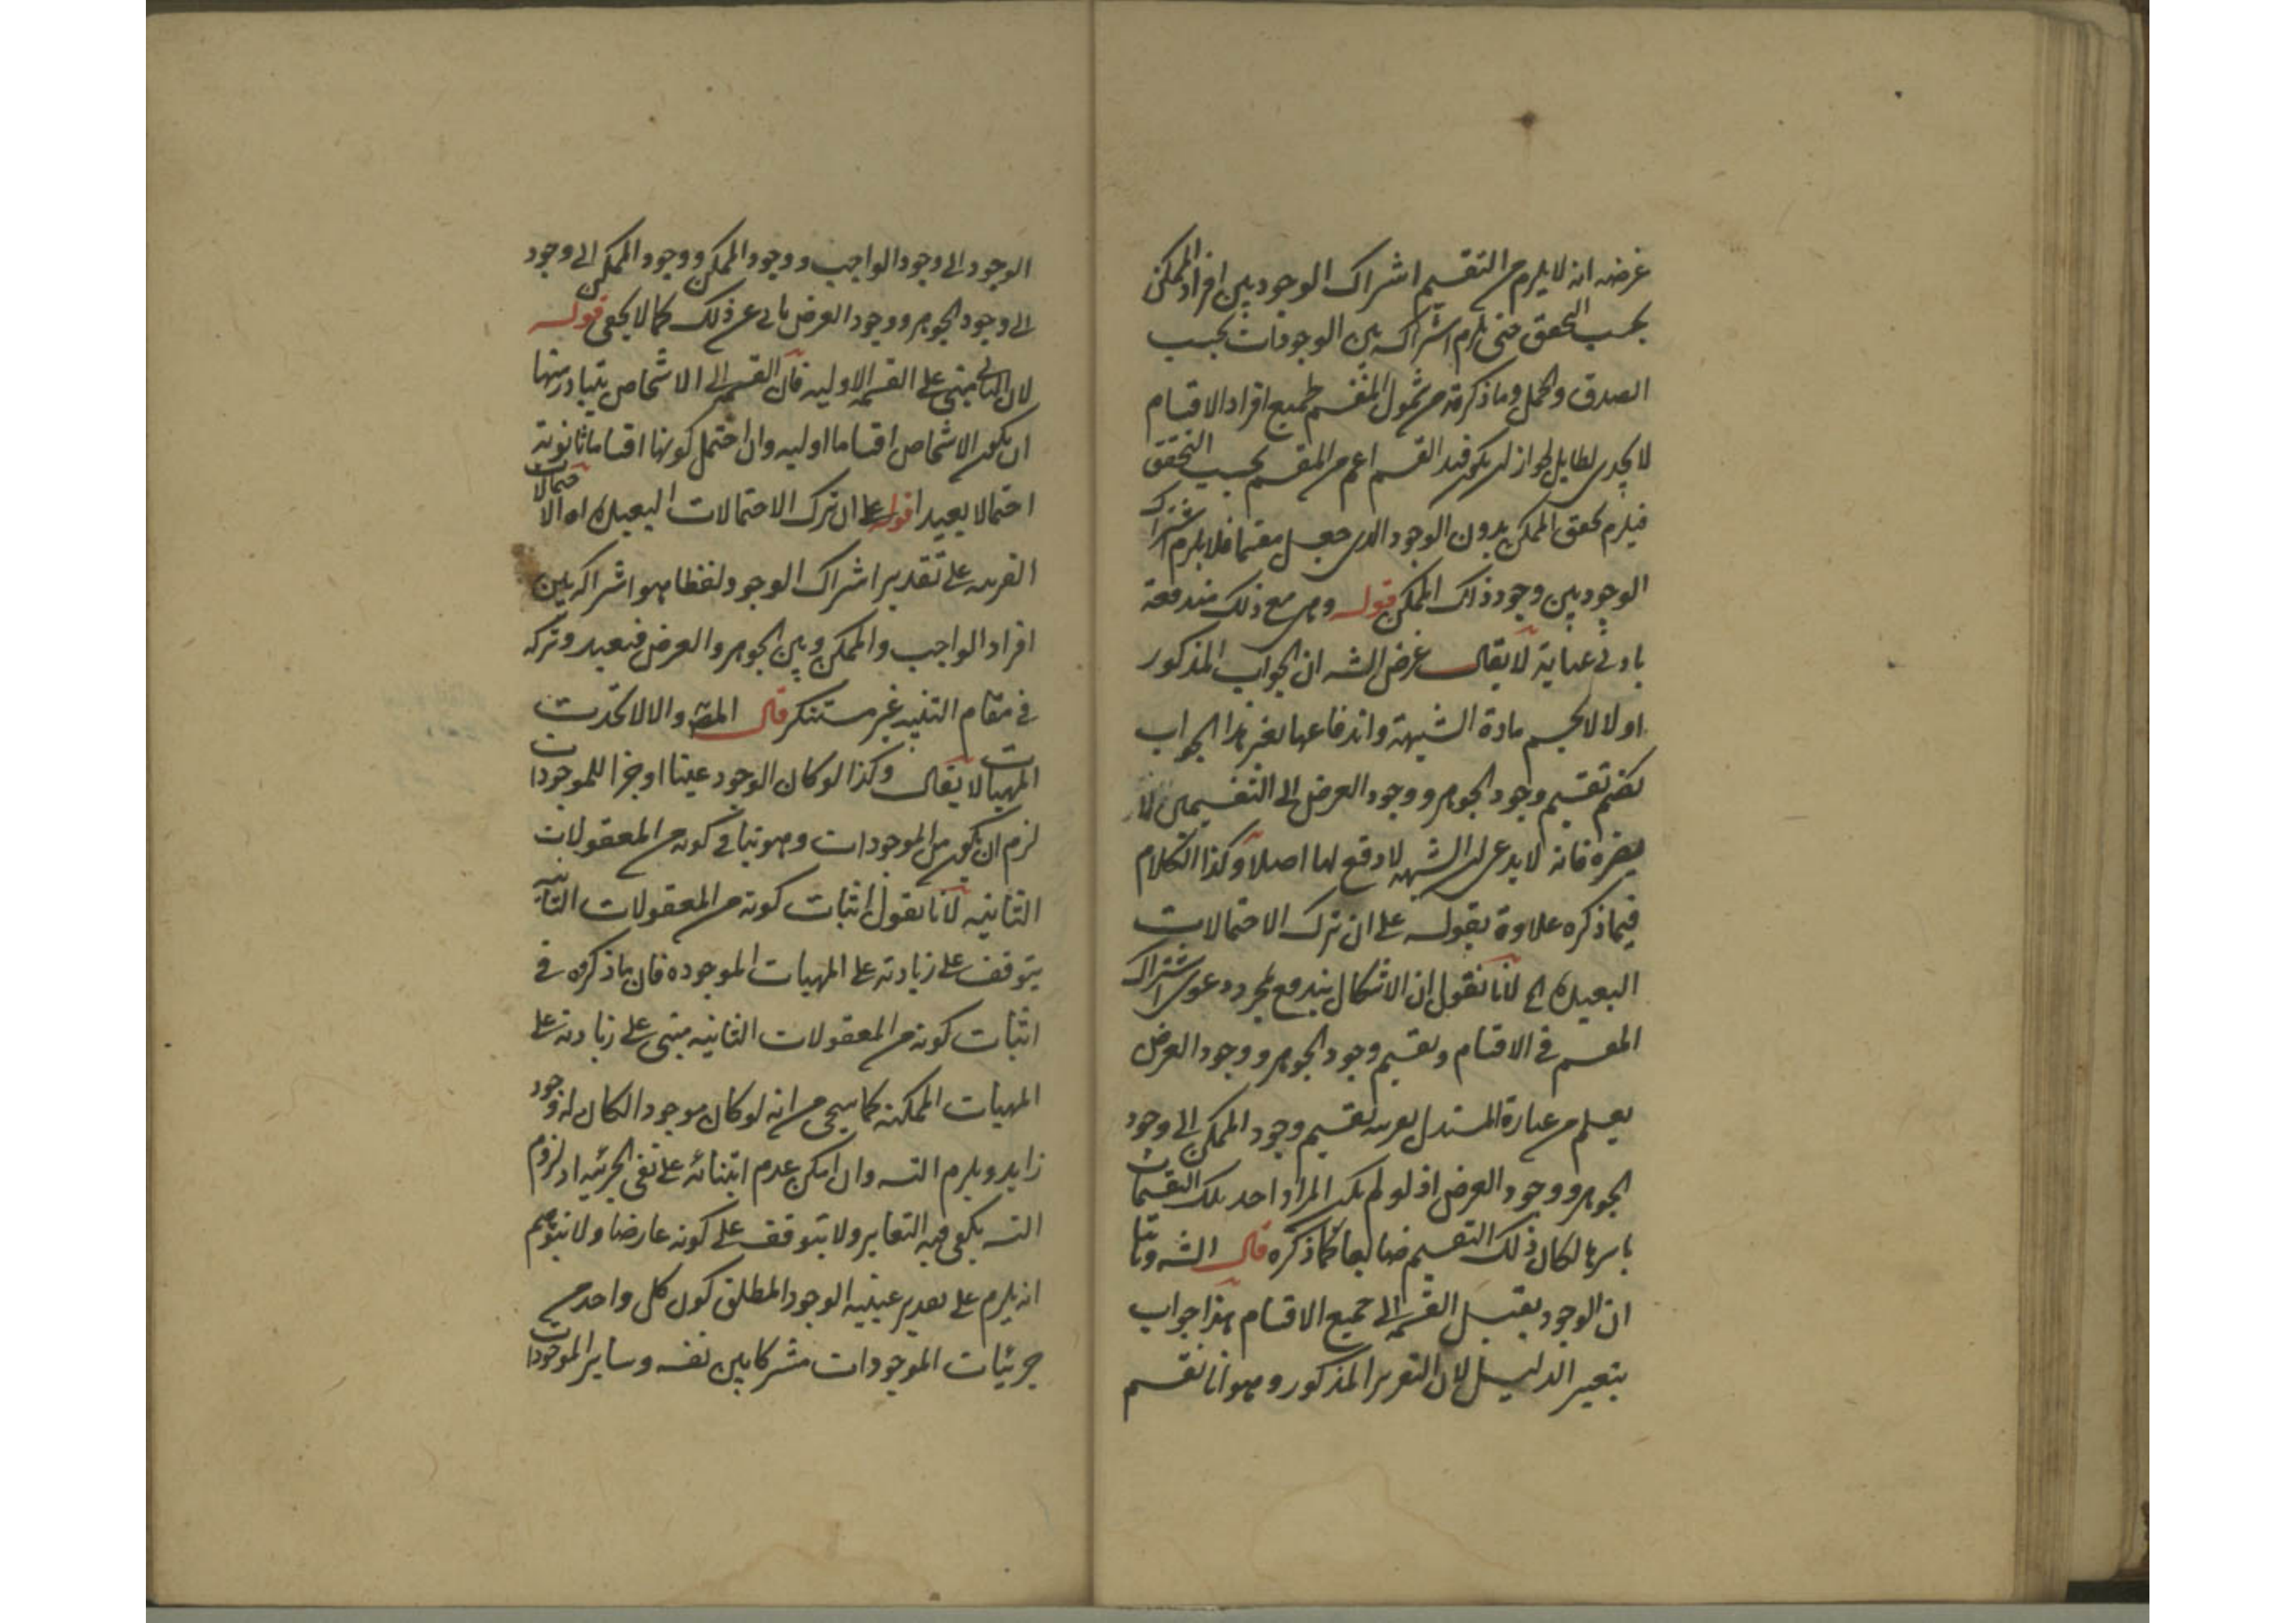 غرضه انه لا يلزم من التقسيم اشراك الوجود بين افراد الممكن
بحسب التحقق حتى يلزم اشراكه بين الوجودات بحسب
الصدق والحمل وما ذكرته من شمول المقسم لجميع افراد الاقسام
لا يجدى لطايل لجواز ان يكون قيد القسم اعم من المقسم بحسب التحقق
فيلزم تحقق الممكن بدون الوجود الذى جعل مقسما فلا يلزم اشتراك
الوجود بين وجود ذلك الممكن قوله وهى مع ذلك مندفعة
بادنى عناية لا يقال غرض الشه ان الجواب المذكور
اولا لا يحسم مادة الشبهة واندفاعها بغير هذا الجواب
بضم تقسيم وجود الجوهر ووجود العرض الى التقسيمين لا
يضره فانه لا يدعى ان الشبهة لا دفع لها اصلا وكذا الكلام
فيما ذكره علاوة بقوله على ان ترك الاحتمالات
البعيدة الخ لانا نقول ان الاشكال يندفع بمجرد دعوى اشتراك
المقسم فى الاقسام وتقسيم وجود الجوهر ووجود العرض
يعلم من عبارة المستدل بقرينة تقسيم وجود الممكن الى وجود
الجوهر ووجود العرض اذ لو لم يكن المراد احد تلك التقسيمات
باسرها لكان ذلك التقسيم ضايعا كما ذكره قال الشه وثانيا
ان الوجود يقبل القسمة الى جميع الاقسام هذا جواب
بتغيير الدليل لان التقرير المذكور وهو انا نقسم
الوجود الى وجود الواجب ووجود الممكن ووجود الممكن الى وجود
الى وجود الجوهر ووجود العرض مانع عن ذلك كما لا يخفى قوله
لان التانى مبنى على القسمة الاوليه فان القسمة الى الاشخاص يتبادر منها
ان يكون الاشخاص اقساما اوليه وان احتمل كونها اقساما ثانوية
احتمالا بعيدا قوله على ان ترك الاحتمالات البعيدة اه الاحتمالات
القريبه على تقدير اشراك الوجود لفظا هو اشراكه بين
افراد الواجب والممكن وبين الجوهر والعرض فبعيد وتركه
فى مقام التنبيه غير مستنكر قال المصه والا لاتحدت
المهيات لا يقال وكذا لو كان الوجود عينا او جزا للموجودات
لزم ان يكون من الموجودات وهو ينافى كونه من المعقولات
الثانيه لانا نقول اثبات كونه من المعقولات الثانيه
يتوقف على زيادته على المهيات الموجوده فان ما ذكروه فى
اثبات كونه من المعقولات الثانيه مبنى على زيادته على
المهيات الممكنه كما سيجى من انه لو كان موجودا لكان له وجود
زايد ويلزم التسه وان امكن عدم ابتنائه على نفى الجزئيه اذ لزوم
التسه يكفى فيه التغاير ولا يتوقف على كونه عارضا ولا نتوهم
انه يلزم على تقدير عينيه الوجود المطلق كون كل واحد من
جزئيات الموجودات مشركا بين نفسه وساير الموجودات